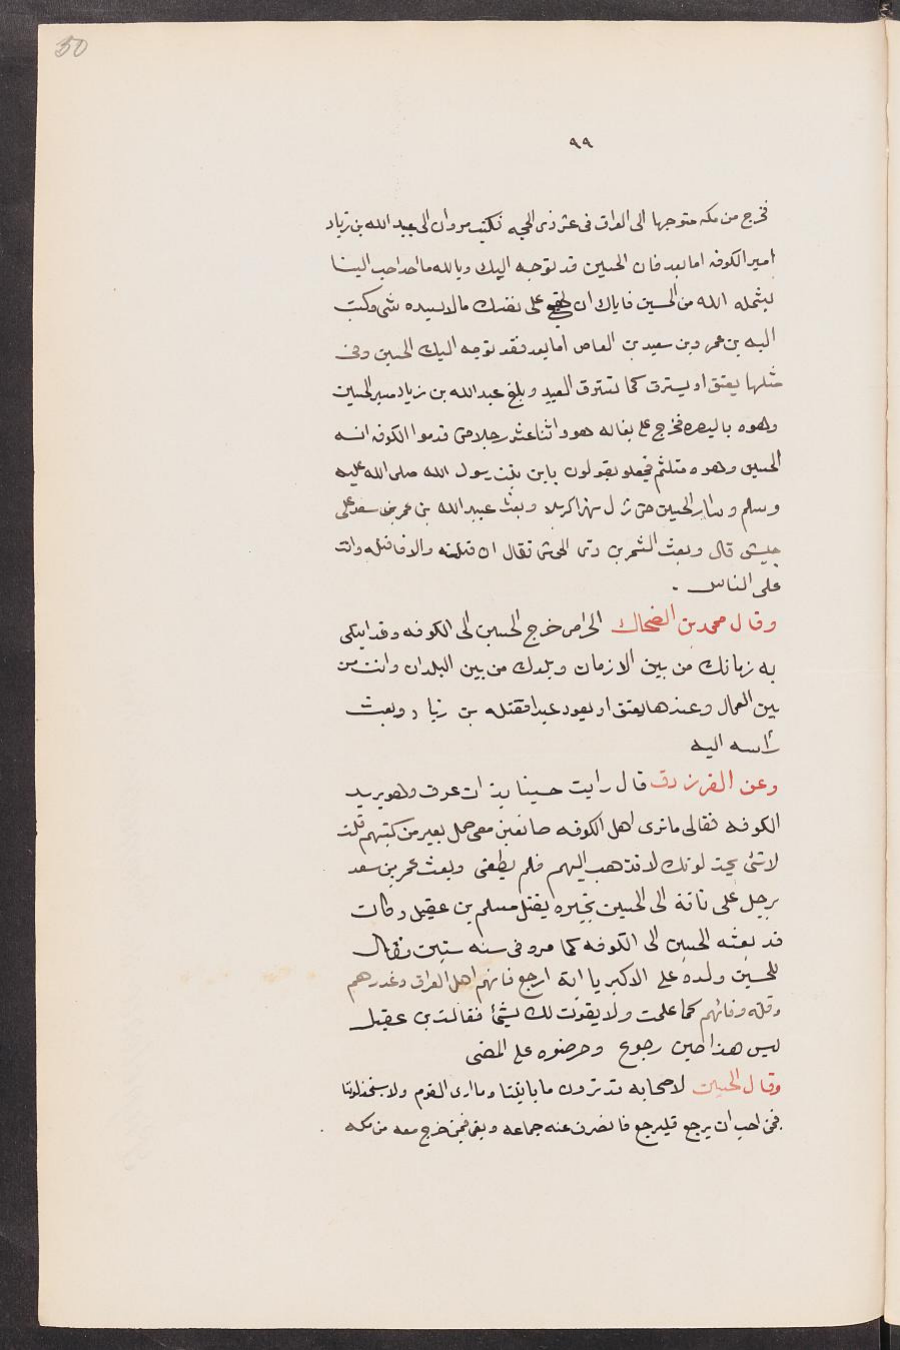 50
٩٩
فخرج من مكه متوجها الى العراق فى عشر ذى الحجه فكتب مروان الى عبيد الله بن زياد
امير الكوفه اما بعد فان الحسين قد توجه اليك وبالله ما احد احب الينا
يشمله الله من الحسين فاياك ان تهيج على نفسك مالا يسيده شى وكتب
اليه بن عمرو بن سعيد بن العاص اما بعد فقد توجه اليك الحسين وفى
مثلها يعتق او يسترق كما تسترق العبيد وبلغ عبد الله بن زياد مسير الحسين
وهوه بالبصره فخرج على بغاله هو واثنا عشر رجلا حتى قدموا الكوفه انه
الحسين وهوه متلثم فجعلو يقولون يا بن بنت رسول الله صلى الله عليه
وسلم وسار الحسين حتى نزل نهرا كربلا وبعث عبيد الله بن عمر بن سعد على
جيش قال وبعث الشمر بن ذى الجوشن فقال ان قتلته والا فاقتله وانت
على الناس .
وقال محمد بن الضحاك الحزامى خرج الحسين الى الكوفه وقد ابتلى
به زمانك من بين الازمان وبلدك من بين البلدان وانت من
بين العمال وعندها يعتق او يعود عبدا فقتله بن زياد وبعث
راسه اليه
وعن الفرزدق قال رايت حسينا بذات عرق وهو يريد
الكوفه فقال ما ترى اهل الكوفه صانعين معى حمل بعير من كتبهم قلت
لا شئ يخذلونك لا تذهب اليهم فلم يطعنى وبعث عمر بن سعد
برجل على ناقة الى الحسين يخبره بقتل مسلم بن عقيل وكان
قد بعثه الحسين الى الكوفه كما مر وفى سنه ستين فقال
للحسين ولده على الاكبر يا ابة ارجع فانهم اهل العراق وغدرهم
وقلة وفائهم كما علمت ولا يفوت لك بشئ فقالت بن عقيل
ليس هذا حين رجوع وحرضوه على المضى
وقال الحسين لاصحابه قد ترون ما ياتينا وما ارى القوم ولا سيخذلوننا
فمن احب ان يرجع فليرجع فانصرف عنه جماعه وبقى فيمن خرج معه من مكه .